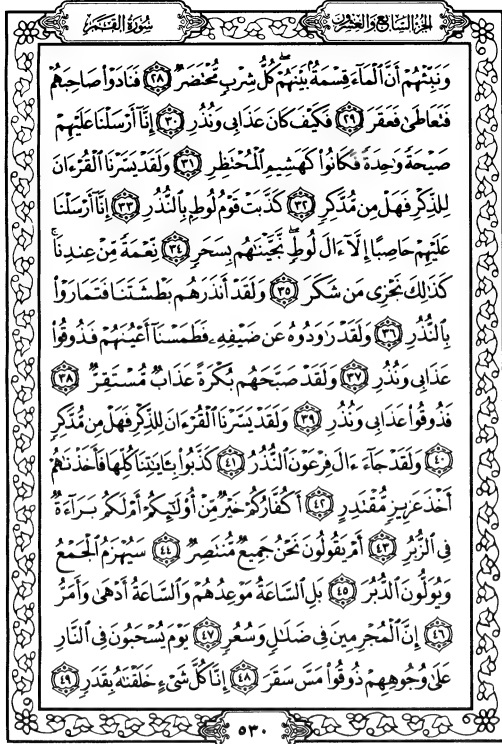 سُورَةُ القَمَرِ
الجُزْءُ السَّابِعُ وَالعِشْرُونَ
وَنَبِّئْهُمْ أَنَّ ٱلْمَآءَ قِسْمَةٌۢ بَيْنَهُمْ ۖ كُلُّ شِرْبٍ مُّحْتَضَرٌ ۝٢٨ فَنَادَوْا۟ صَاحِبَهُمْ
فَتَعَاطَىٰ فَعَقَرَ ۝٢٩ فَكَيْفَ كَانَ عَذَابِى وَنُذُرِ ۝٣٠ إِنَّآ أَرْسَلْنَا عَلَيْهِمْ
صَيْحَةً وَٰحِدَةً فَكَانُوا۟ كَهَشِيمِ ٱلْمُحْتَظِرِ ۝٣١ وَلَقَدْ يَسَّرْنَا ٱلْقُرْءَانَ
لِلذِّكْرِ فَهَلْ مِن مُّدَّكِرٍ ۝٣٢ كَذَّبَتْ قَوْمُ لُوطٍۭ بِٱلنُّذُرِ ۝٣٣ إِنَّآ أَرْسَلْنَا
عَلَيْهِمْ حَاصِبًا إِلَّآ ءَالَ لُوطٍ ۖ نَّجَّيْنَٰهُم بِسَحَرٍ ۝٣٤ نِّعْمَةً مِّنْ عِندِنَا ۚ
كَذَٰلِكَ نَجْزِى مَن شَكَرَ ۝٣٥ وَلَقَدْ أَنذَرَهُم بَطْشَتَنَا فَتَمَارَوْا۟
بِٱلنُّذُرِ ۝٣٦ وَلَقَدْ رَٰوَدُوهُ عَن ضَيْفِهِۦ فَطَمَسْنَآ أَعْيُنَهُمْ فَذُوقُوا۟
عَذَابِى وَنُذُرِ ۝٣٧ وَلَقَدْ صَبَّحَهُم بُكْرَةً عَذَابٌ مُّسْتَقِرٌّ ۝٣٨
فَذُوقُوا۟ عَذَابِى وَنُذُرِ ۝٣٩ وَلَقَدْ يَسَّرْنَا ٱلْقُرْءَانَ لِلذِّكْرِ فَهَلْ مِن مُّدَّكِرٍ
۝٤٠ وَلَقَدْ جَآءَ ءَالَ فِرْعَوْنَ ٱلنُّذُرُ ۝٤١ كَذَّبُوا۟ بِـَٔايَٰتِنَا كُلِّهَا فَأَخَذْنَٰهُمْ
أَخْذَ عَزِيزٍ مُّقْتَدِرٍ ۝٤٢ أَكُفَّارُكُمْ خَيْرٌ مِّنْ أُو۟لَٰٓئِكُمْ أَمْ لَكُم بَرَآءَةٌ
فِى ٱلزُّبُرِ ۝٤٣ أَمْ يَقُولُونَ نَحْنُ جَمِيعٌ مُّنتَصِرٌ ۝٤٤ سَيُهْزَمُ ٱلْجَمْعُ
وَيُوَلُّونَ ٱلدُّبُرَ ۝٤٥ بَلِ ٱلسَّاعَةُ مَوْعِدُهُمْ وَٱلسَّاعَةُ أَدْهَىٰ وَأَمَرُّ
۝٤٦ إِنَّ ٱلْمُجْرِمِينَ فِى ضَلَٰلٍ وَسُعُرٍ ۝٤٧ يَوْمَ يُسْحَبُونَ فِى ٱلنَّارِ
عَلَىٰ وُجُوهِهِمْ ذُوقُوا۟ مَسَّ سَقَرَ ۝٤٨ إِنَّا كُلَّ شَىْءٍ خَلَقْنَٰهُ بِقَدَرٍ ۝٤٩
٥٣٠